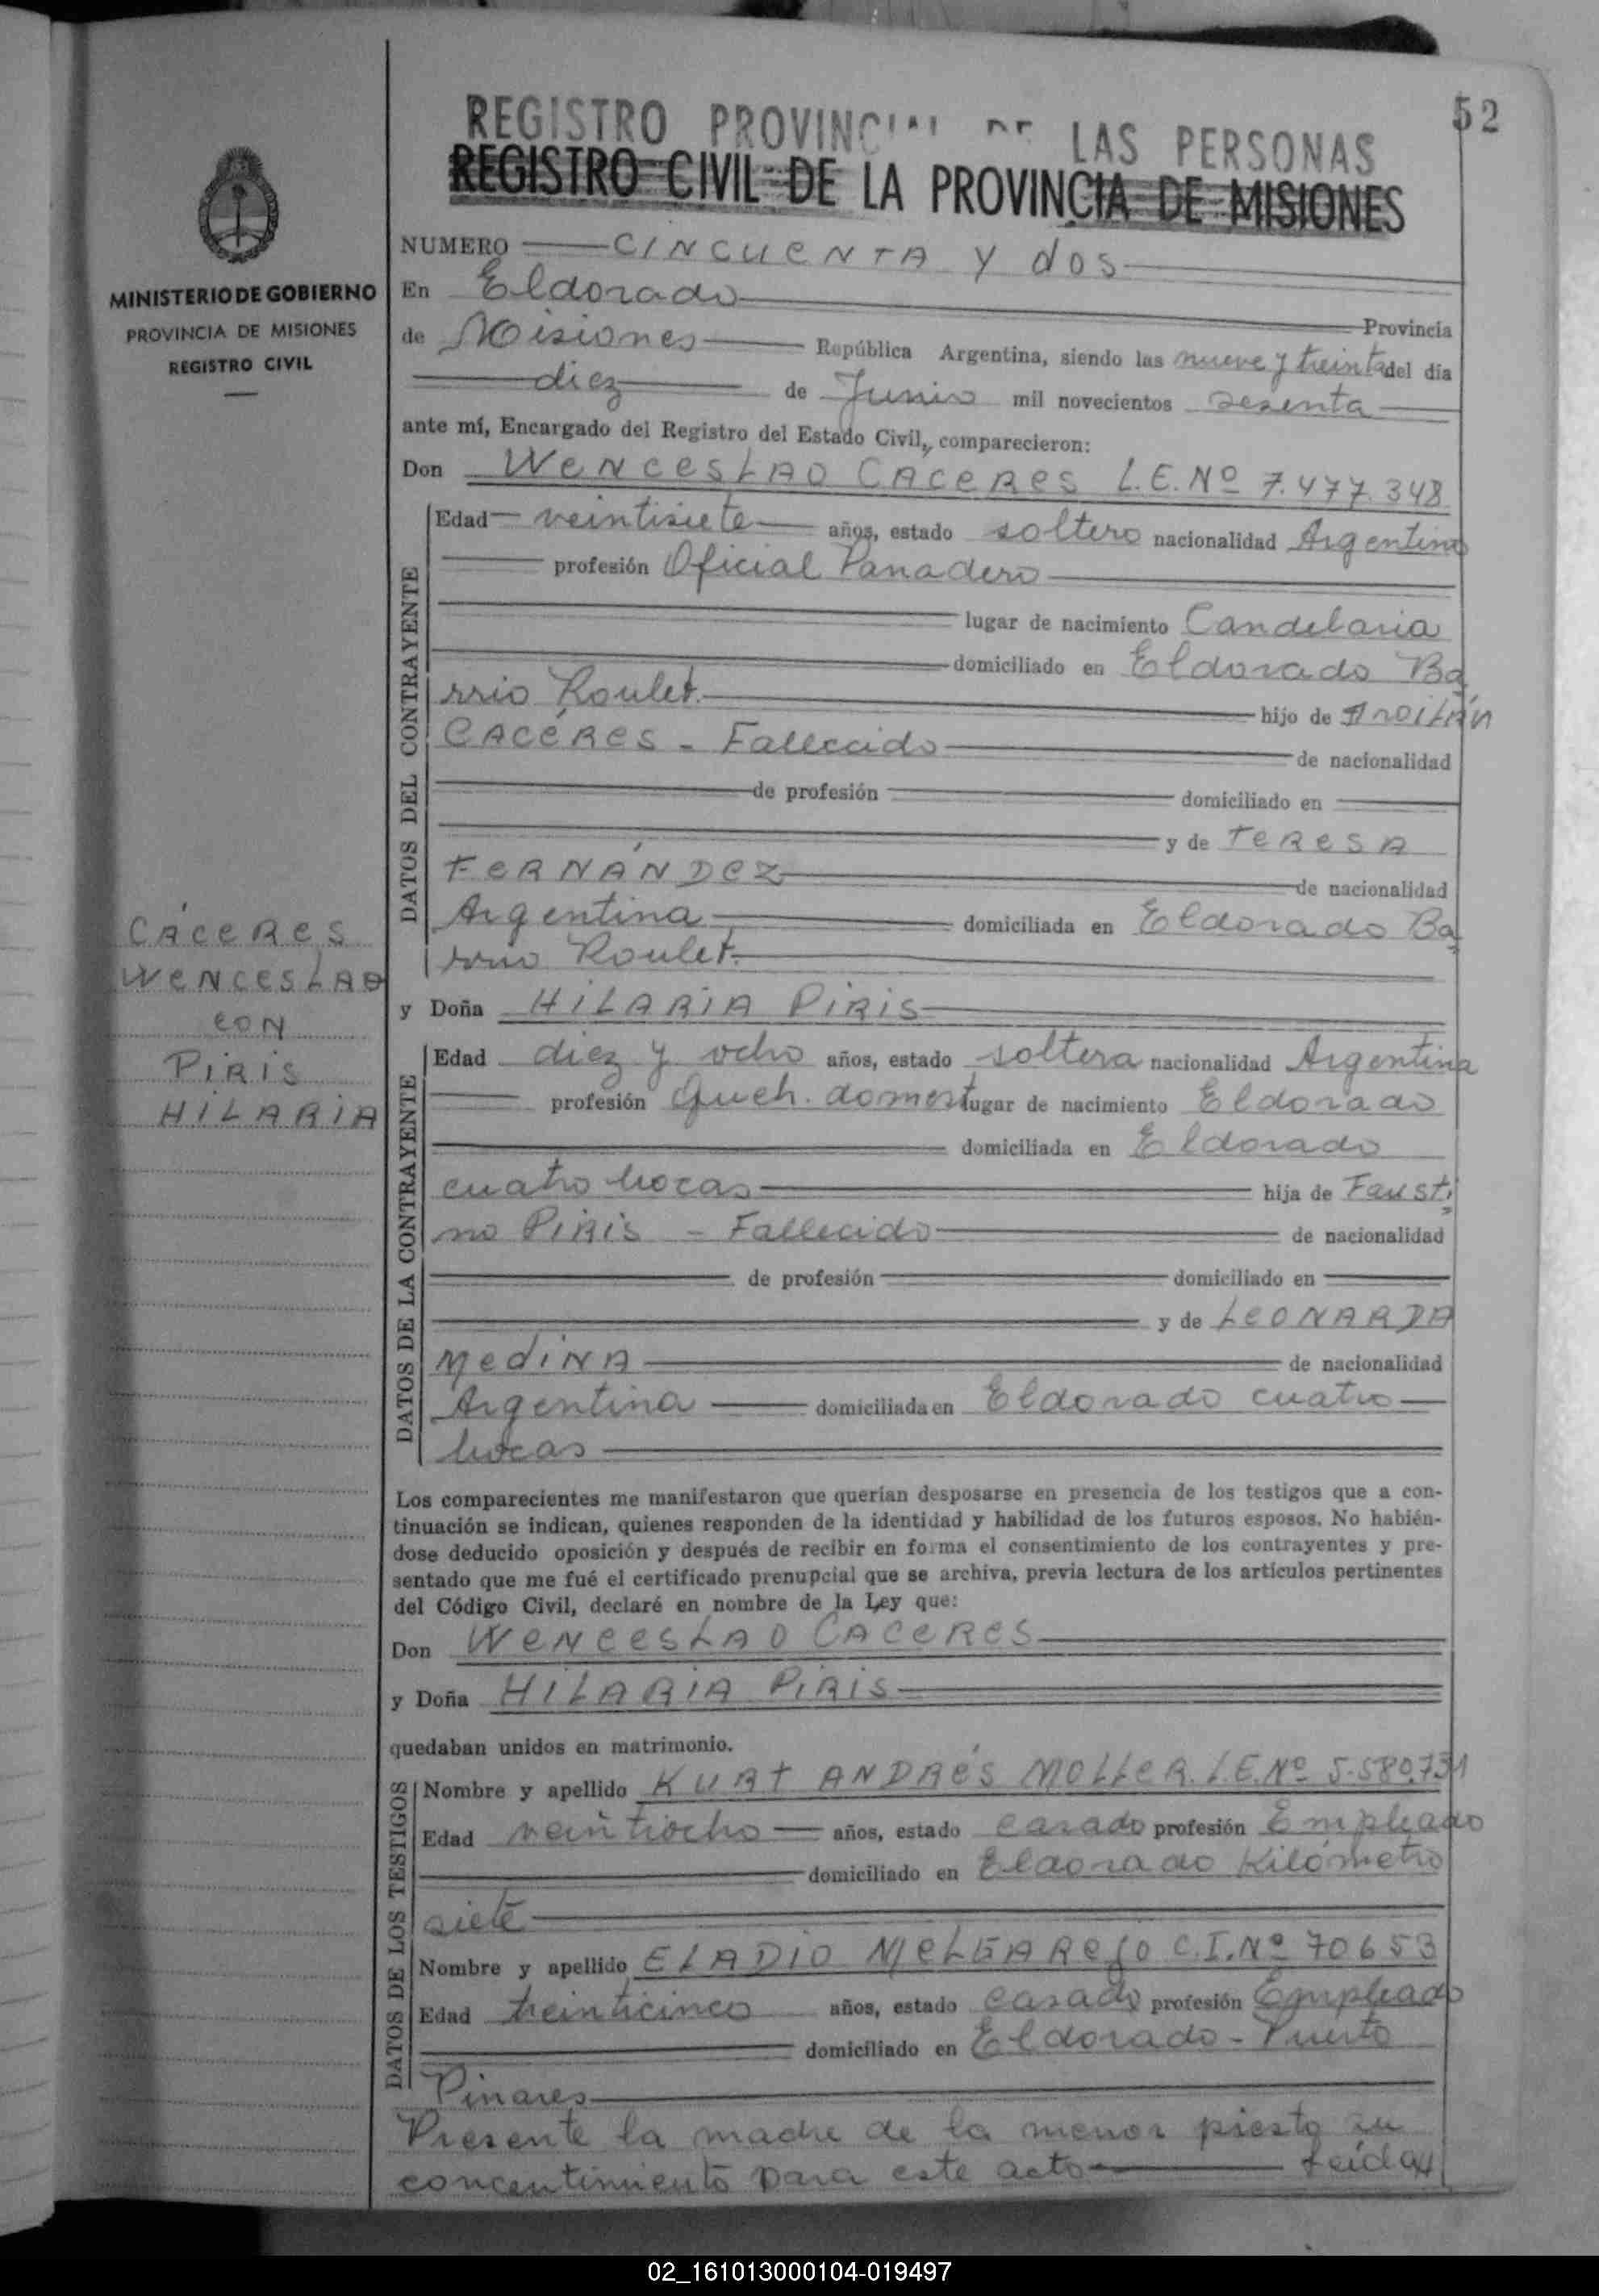 52
REGISTRO PROVINCIAL DE LAS PERSONAS
REGISTRO CIVIL DE LA PROVINCIA DE MISIONES
MINISTERIO DE GOBIERNO
PROVINCIA DE MISIONES
REGISTRO CIVIL
CÁCERES
WENCESLAO
CON
PIRIS
HILARIA
NUMERO CINCUENTA Y DOS
En Eldorado Provincia
de Misiones República Argentina, siendo las nueve y treinta del día
diez de Junio mil novecientos sesenta
ante mí, Encargado del Registro del Estado Civil, comparecieron:
Don WENCESLAO CACERES L.E. Nº 7.477.348
DATOS DEL CONTRAYENTE
Edad veintisiete años, estado soltero nacionalidad Argentino
profesión Oficial Panadero
lugar de nacimiento Candelaria
domiciliado en Eldorado Ba
rrio Roulet. hijo de FROILÁN
CACÉRES - Fallecido de nacionalidad
de profesión domiciliado en
y de TERESA
FERNÁNDEZ de nacionalidad
Argentina domiciliada en Eldorado Ba
rrio Roulet.
y Doña HILARIA PIRIS
DATOS DE LA CONTRAYENTE
Edad diez y ocho años, estado soltera nacionalidad Argentina
profesión Queh. domest lugar de nacimiento Eldorado
domiciliada en Eldorado
cuatro bocas hija de Fausti
no PIRIS - Fallecido de nacionalidad
de profesión domiciliado en
y de LEONARDA
MEDINA de nacionalidad
Argentina domiciliada en Eldorado cuatro
bocas
Los comparecientes me manifestaron que querían desposarse en presencia de los testigos que a con-
tinuación se indican, quienes responden de la identidad y habilidad de los futuros esposos. No habién-
dose deducido oposición y después de recibir en forma el consentimiento de los contrayentes y pre-
sentado que me fué el certificado prenupcial que se archiva, previa lectura de los artículos pertinentes
del Código Civil, declaré en nombre de la Ley que:
Don WENCESLAO CACERES
y Doña HILARIA PIRIS
quedaban unidos en matrimonio.
DATOS DE LOS TESTIGOS
Nombre y apellido KURT ANDRÉS MOLLER. L.E. Nº 5.580.731
Edad veintiocho años, estado casado profesión Empleado
domiciliado en Eldorado Kilómetro
siete
Nombre y apellido ELADIO MELGAREJO C.I. Nº 70653
Edad treinticinco años, estado casado profesión Empleado
domiciliado en Eldorado - Puerto
Pinares
Presente la madre de la menor presta su
concentimiento para este acto Leída
02_161013000104-019497